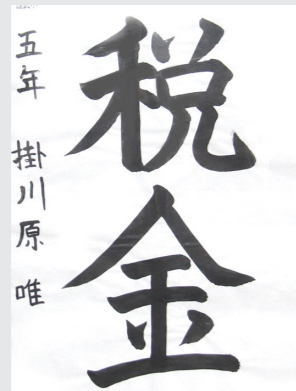 税金
五年 掛川原 唯